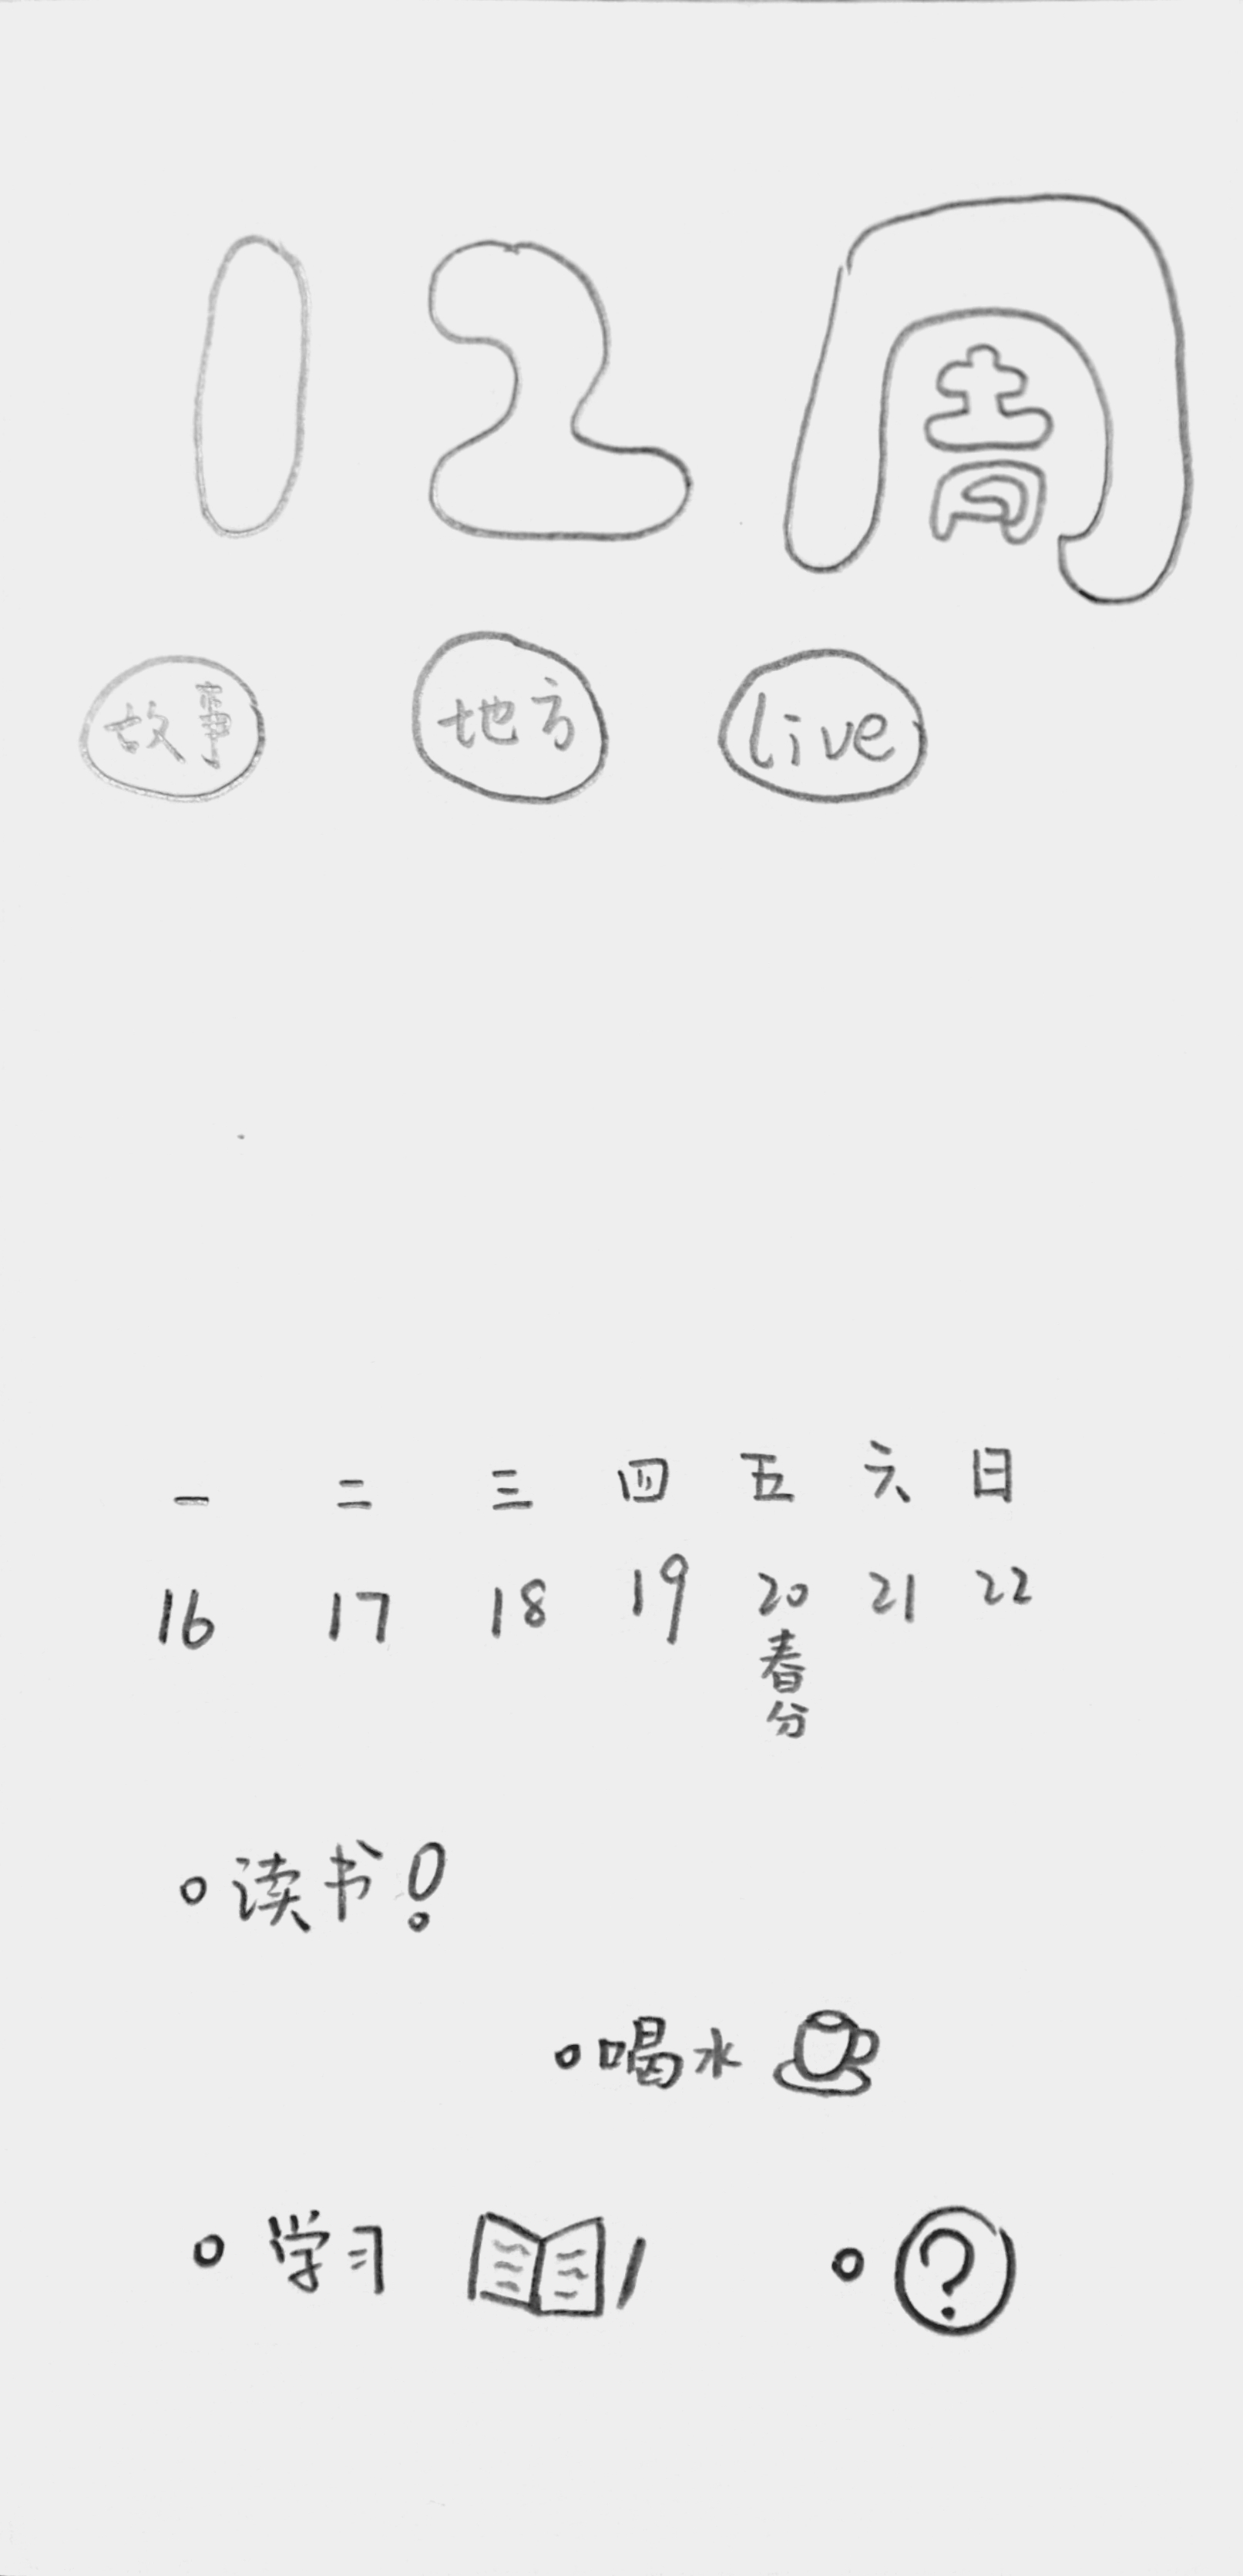 12周
故事 地方 live
一 二 三 四 五 六 日
16 17 18 19 20 21 22
春分
读书!
喝水
学习 ?